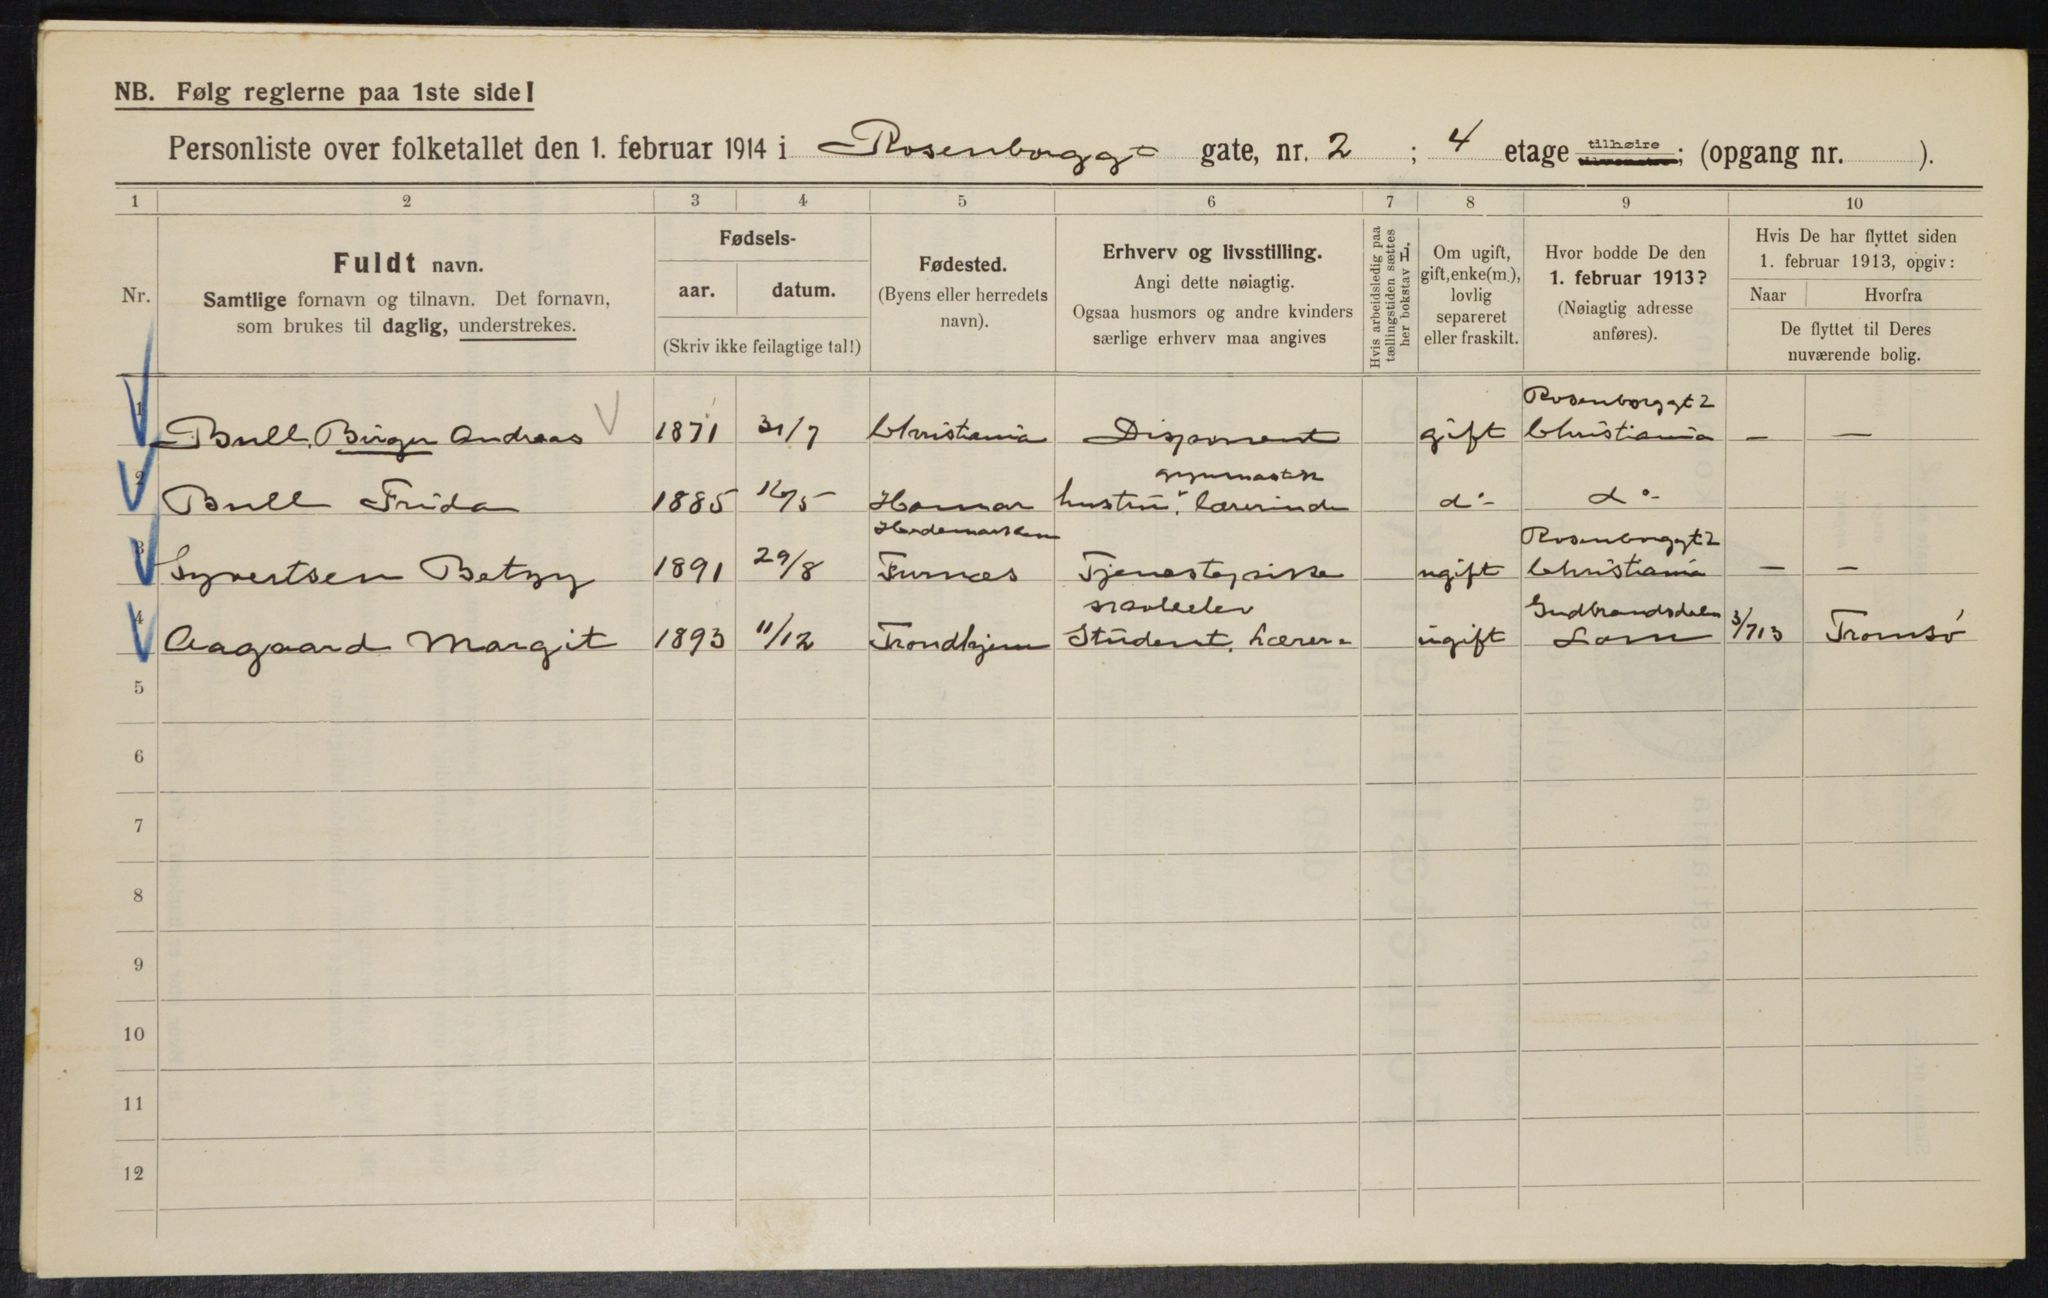 NB. Følg reglerne paa 1ste side!
Personliste over folketallet den 1. februar 1914 i Rosenborggt gate, nr. 2 ; 4 etage tilhøire; (opgang nr. ).
1 2 3 4 5 6 7 8 9 10
Nr.
Fuldt navn.
Samtlige fornavn og tilnavn. Det fornavn,
som brukes til daglig, understrekes.
Fødsels-
aar. datum.
(Skriv ikke feilagtige tal!)
Fødested.
(Byens eller herredets
navn).
Erhverv og livsstilling.
Angi dette nøiagtig.
Ogsaa husmors og andre kvinders
særlige erhverv maa angives
Hvis arbeidsledig paa
tællingstiden sættes
her bokstav L.
Om ugift,
gift, enke(m.),
lovlig
separeret
eller fraskilt.
Hvor bodde De den
1. februar 1913?
(Nøiagtig adresse
anføres).
Hvis De har flyttet siden
1. februar 1913, opgiv:
Naar Hvorfra
De flyttet til Deres
nuværende bolig.
Rosenborggt 2
1 Bull, Birger Andreas 1871 31/7 Christiania Disponent gift Christiania — —
gymnastik
2 Bull Frida 1885 16/5 Hamar hustru, lærerinde do- do-
Hedemarken Rosenborggt 2
3 Syvertsen Betzy 1891 29/8 Furnes Tjenestepike ugift Christiania — —
skoleelev Gudbrandsdalen
4 Aagaard Margit 1893 11/12 Trondhjem Student, Lærer= ugift Lom 3/7 13 Tromsø
5
6
7
8
9
10
11
12